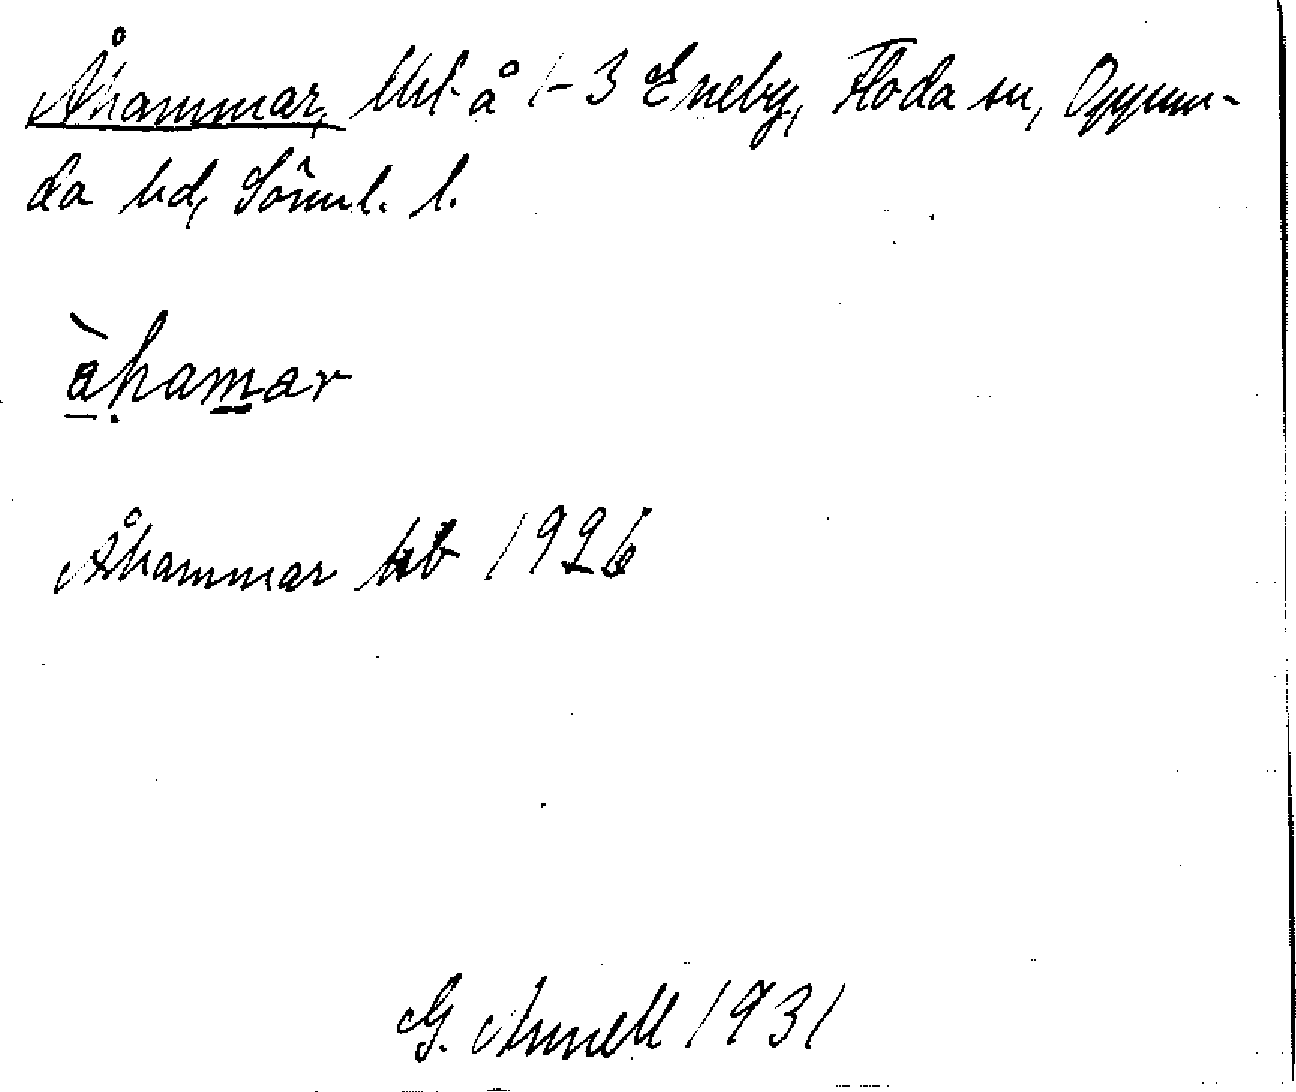 Åhammar, lht å 1-3 Eneby, Floda sn, Oppun-
da hd, Sörml. l.
àhamar
Åhammar hb 1926
G. Annell 1931